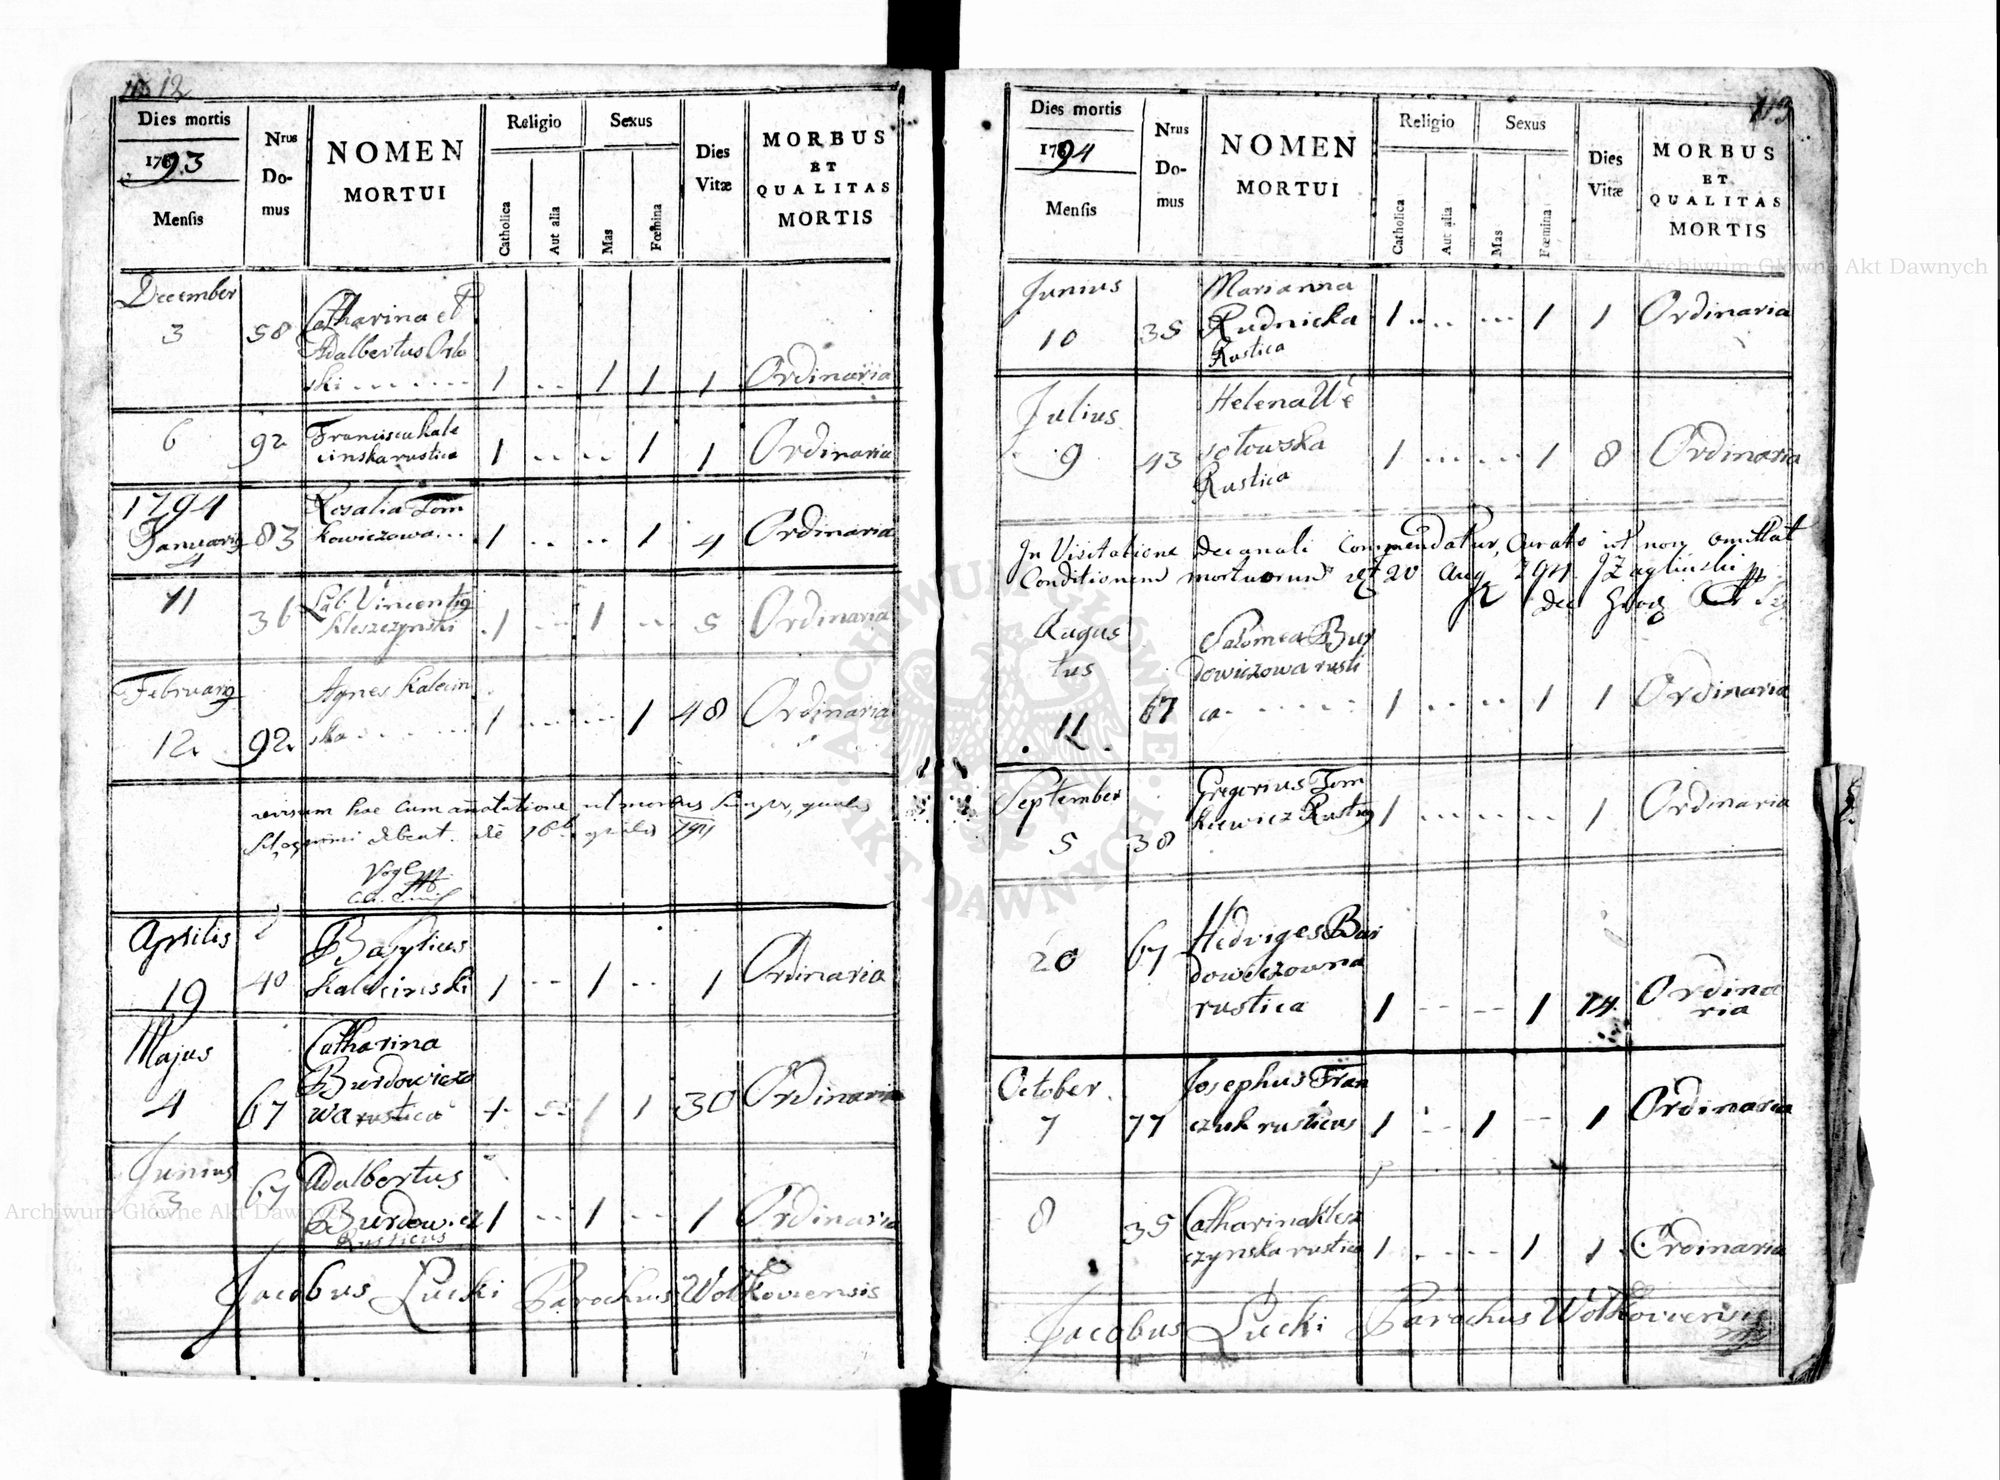 12
Dies mortis
1793
Mensis
Nrus Domus
NOMEN MORTUI
Religio
Catholica
Aut alia
Sexus
Mas
Fœmina
Dies Vitæ
MORBUS ET QUALITAS MORTIS
December
3 58 Catharina et
Adalbertus Orło
ski 1 1 1 1 Ordinaria
6 92 Francisca Kale
cinska rustica 1 1 1 Ordinaria
1794
Januarig 4 83 Rosalia Tom
kowiczowa 1 1 4 Ordinaria
11 36 Lab. Vincentig
Kleszczynski 1 1 5 Ordinaria
Februarg
12 92 Agnes Kalecin
ska 1 1 48 Ordinaria
hac cum annotatione ut morbus semper, qualis
debent.
Aprilis
19 40 Basylius
Kalecinski 1 1 1 Ordinaria
Majus
4 67 Catharina
Burdowiczo
wa rustica 1 1 1 30 Ordinaria
Junius
3 67 Adalbertus
Burdowicz
Rusticus 1 1 1 Ordinaria
Jacobus Lucki Parochus Wołkoviensis
113
Dies mortis
1794
Mensis
Nrus Domus
NOMEN MORTUI
Religio
Catholica
Aut alia
Sexus
Mas
Fœmina
Dies Vitæ
MORBUS ET QUALITAS MORTIS
Junius
10 35 Marianna
Rudnicka
Rustica 1 1 1 Ordinaria
Julius
9 43 Helena We
sołowska
Rustica 1 1 8 Ordinaria
In Visitatione Decanali Commendatur, Curato ut non omittat
Conditionem mortuorum 20 Aug 794
Augus
tus
11 67 Salomea Bur
dowiczowa rusti
ca 1 1 1 Ordinaria
September
5 38 Gregorius Tom
kiewicz Rustig 1 1 Ordinaria
20 67 Hedviges Bur
dowiczowna
rustica 1 1 14 Ordina
ria
October
7 77 Josephus Fran
czuk rusticus 1 1 1 Ordinaria
8 35 Catharina Klesz
czynska rustica 1 1 1 Ordinaria
Jacobus Lucki Parochus Wołkoviensis
Archiwum Główne Akt Dawnych
Archiwum Główne Akt Dawnych
ARCHIWUM GŁÓWNE AKT DAWNYCH